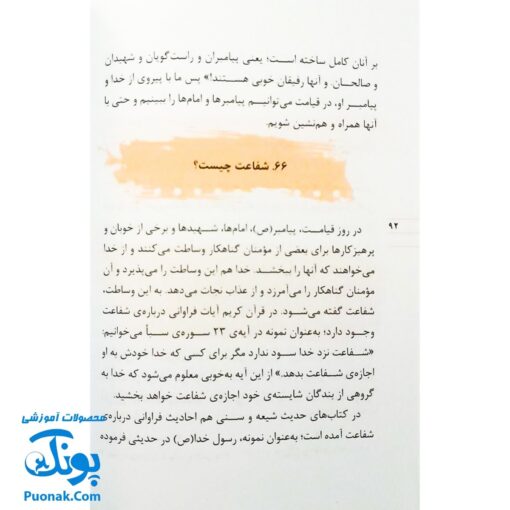 بر آنان کامل ساخته است؛ یعنی پیامبران و راست‌گویان و شهیدان
و صالحان. و آنها رفیقان خوبی هستند!» پس ما با پیروی از خدا و
پیامبر او، در قیامت می‌توانیم پیامبرها و امام‌ها را ببینیم و حتی با
آنها همراه و هم‌نشین شویم.
۶۶. شفاعت چیست؟
۹۲
در روز قیامت، پیامبر(ص)، امام‌ها، شهیدها و برخی از خوبان و
پرهیزکارها برای بعضی از مؤمنان گناهکار وساطت می‌کنند و از خدا
می‌خواهند که آنها را ببخشد. خدا هم این وساطت را می‌پذیرد و آن
مؤمنان گناهکار را می‌آمرزد و از عذاب نجات می‌دهد. به این وساطت،
شفاعت گفته می‌شود. در قرآن کریم آیات فراوانی درباره‌ی شفاعت
وجود دارد؛ به‌عنوان نمونه در آیه‌ی ۲۳ سوره‌ی سبأ می‌خوانیم:
«شفاعت نزد خدا سود ندارد مگر برای کسی که خدا خودش به او
اجازه‌ی شفاعت بدهد.» از این آیه به‌خوبی معلوم می‌شود که خدا به
گروهی از بندگان شایسته‌ی خود اجازه‌ی شفاعت خواهد بخشید.
در کتاب‌های حدیث شیعه و سنی هم احادیث فراوانی درباره‌ی
شفاعت آمده است؛ به‌عنوان نمونه، رسول خدا(ص) در حدیثی فرموده
محصولات آموزشی
پونک
Puonak.Com